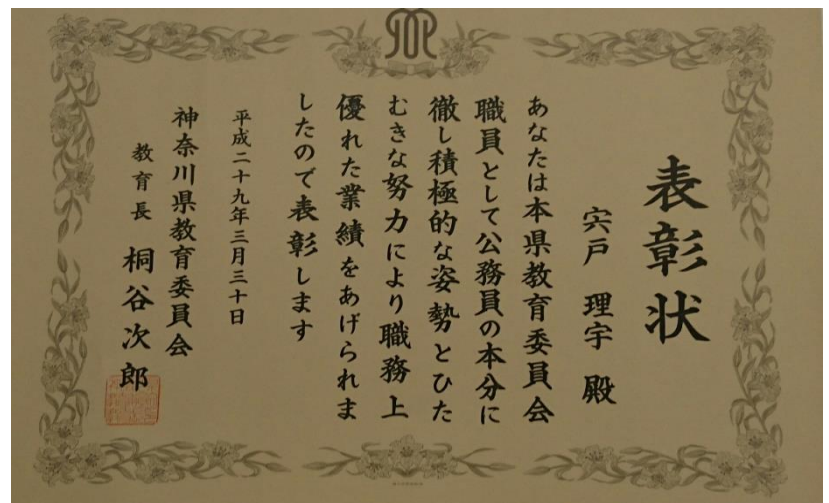 表彰状
宍戸 理宇 殿
あなたは本県教育委員会
職員として公務員の本分に
徹し積極的な姿勢とひた
むきな努力により職務上
優れた業績をあげられま
したので表彰します
平成二十九年三月三十日
神奈川県教育委員会
教育長 桐谷次郎